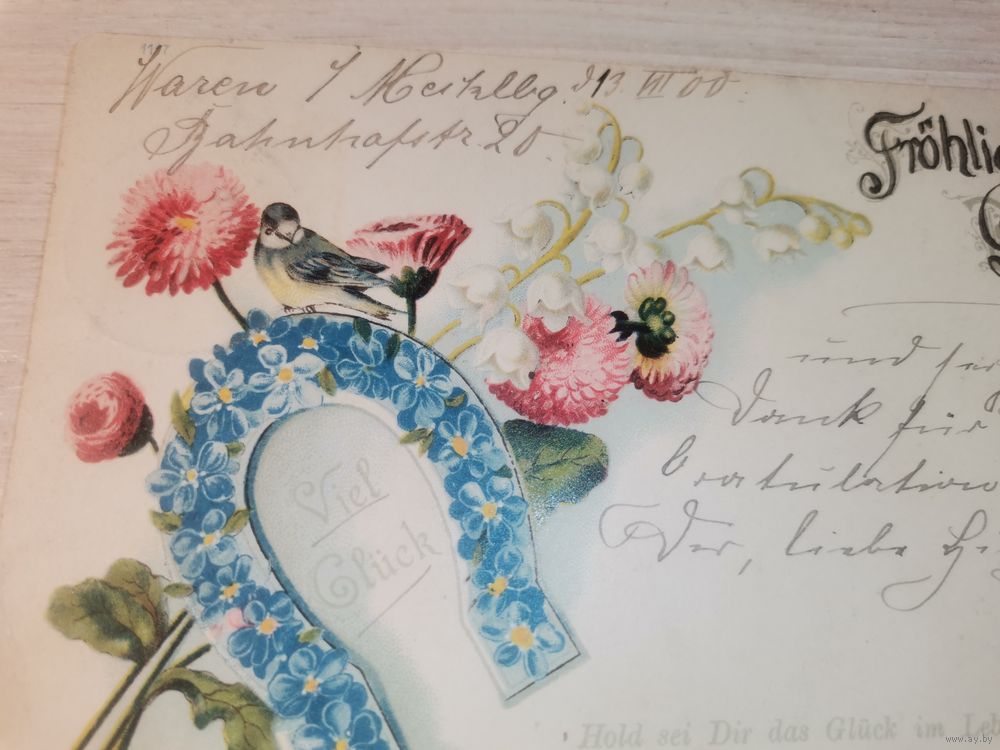 Waren i/ Mecklbg. d 13. VII 00.
Bahnhofstr. 20.
Fröhlic
und
Dank für
Gratulation
Der, liebe
Viel
Glück
Hold sei Dir das Glück im Leb
www.ay.by